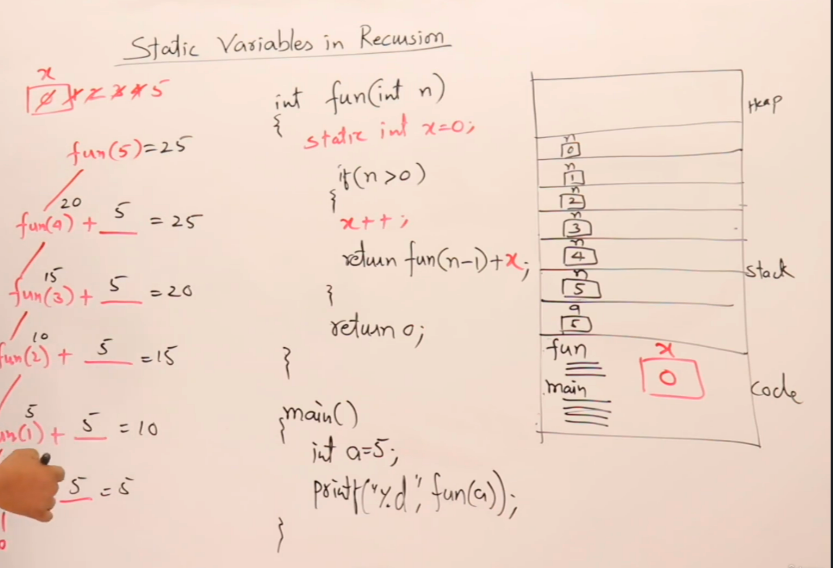 Static Variables in Recursion
x
0 1 2 3 4 5
fun(5)=25
20
fun(4) + 5 = 25
15
fun(3) + 5 = 20
10
fun(2) + 5 = 15
5
un(1) + 5 = 10
5 = 5
0
int fun(int n)
{
static int x=0;
if(n>0)
{
x++;
return fun(n-1)+x;
}
return 0;
}
main()
{
int a=5;
printf("%d", fun(a));
}
Heap
n
0
n
1
n
2
n
3
n
4
n
5
a
5
stack
fun
main
x
0
code